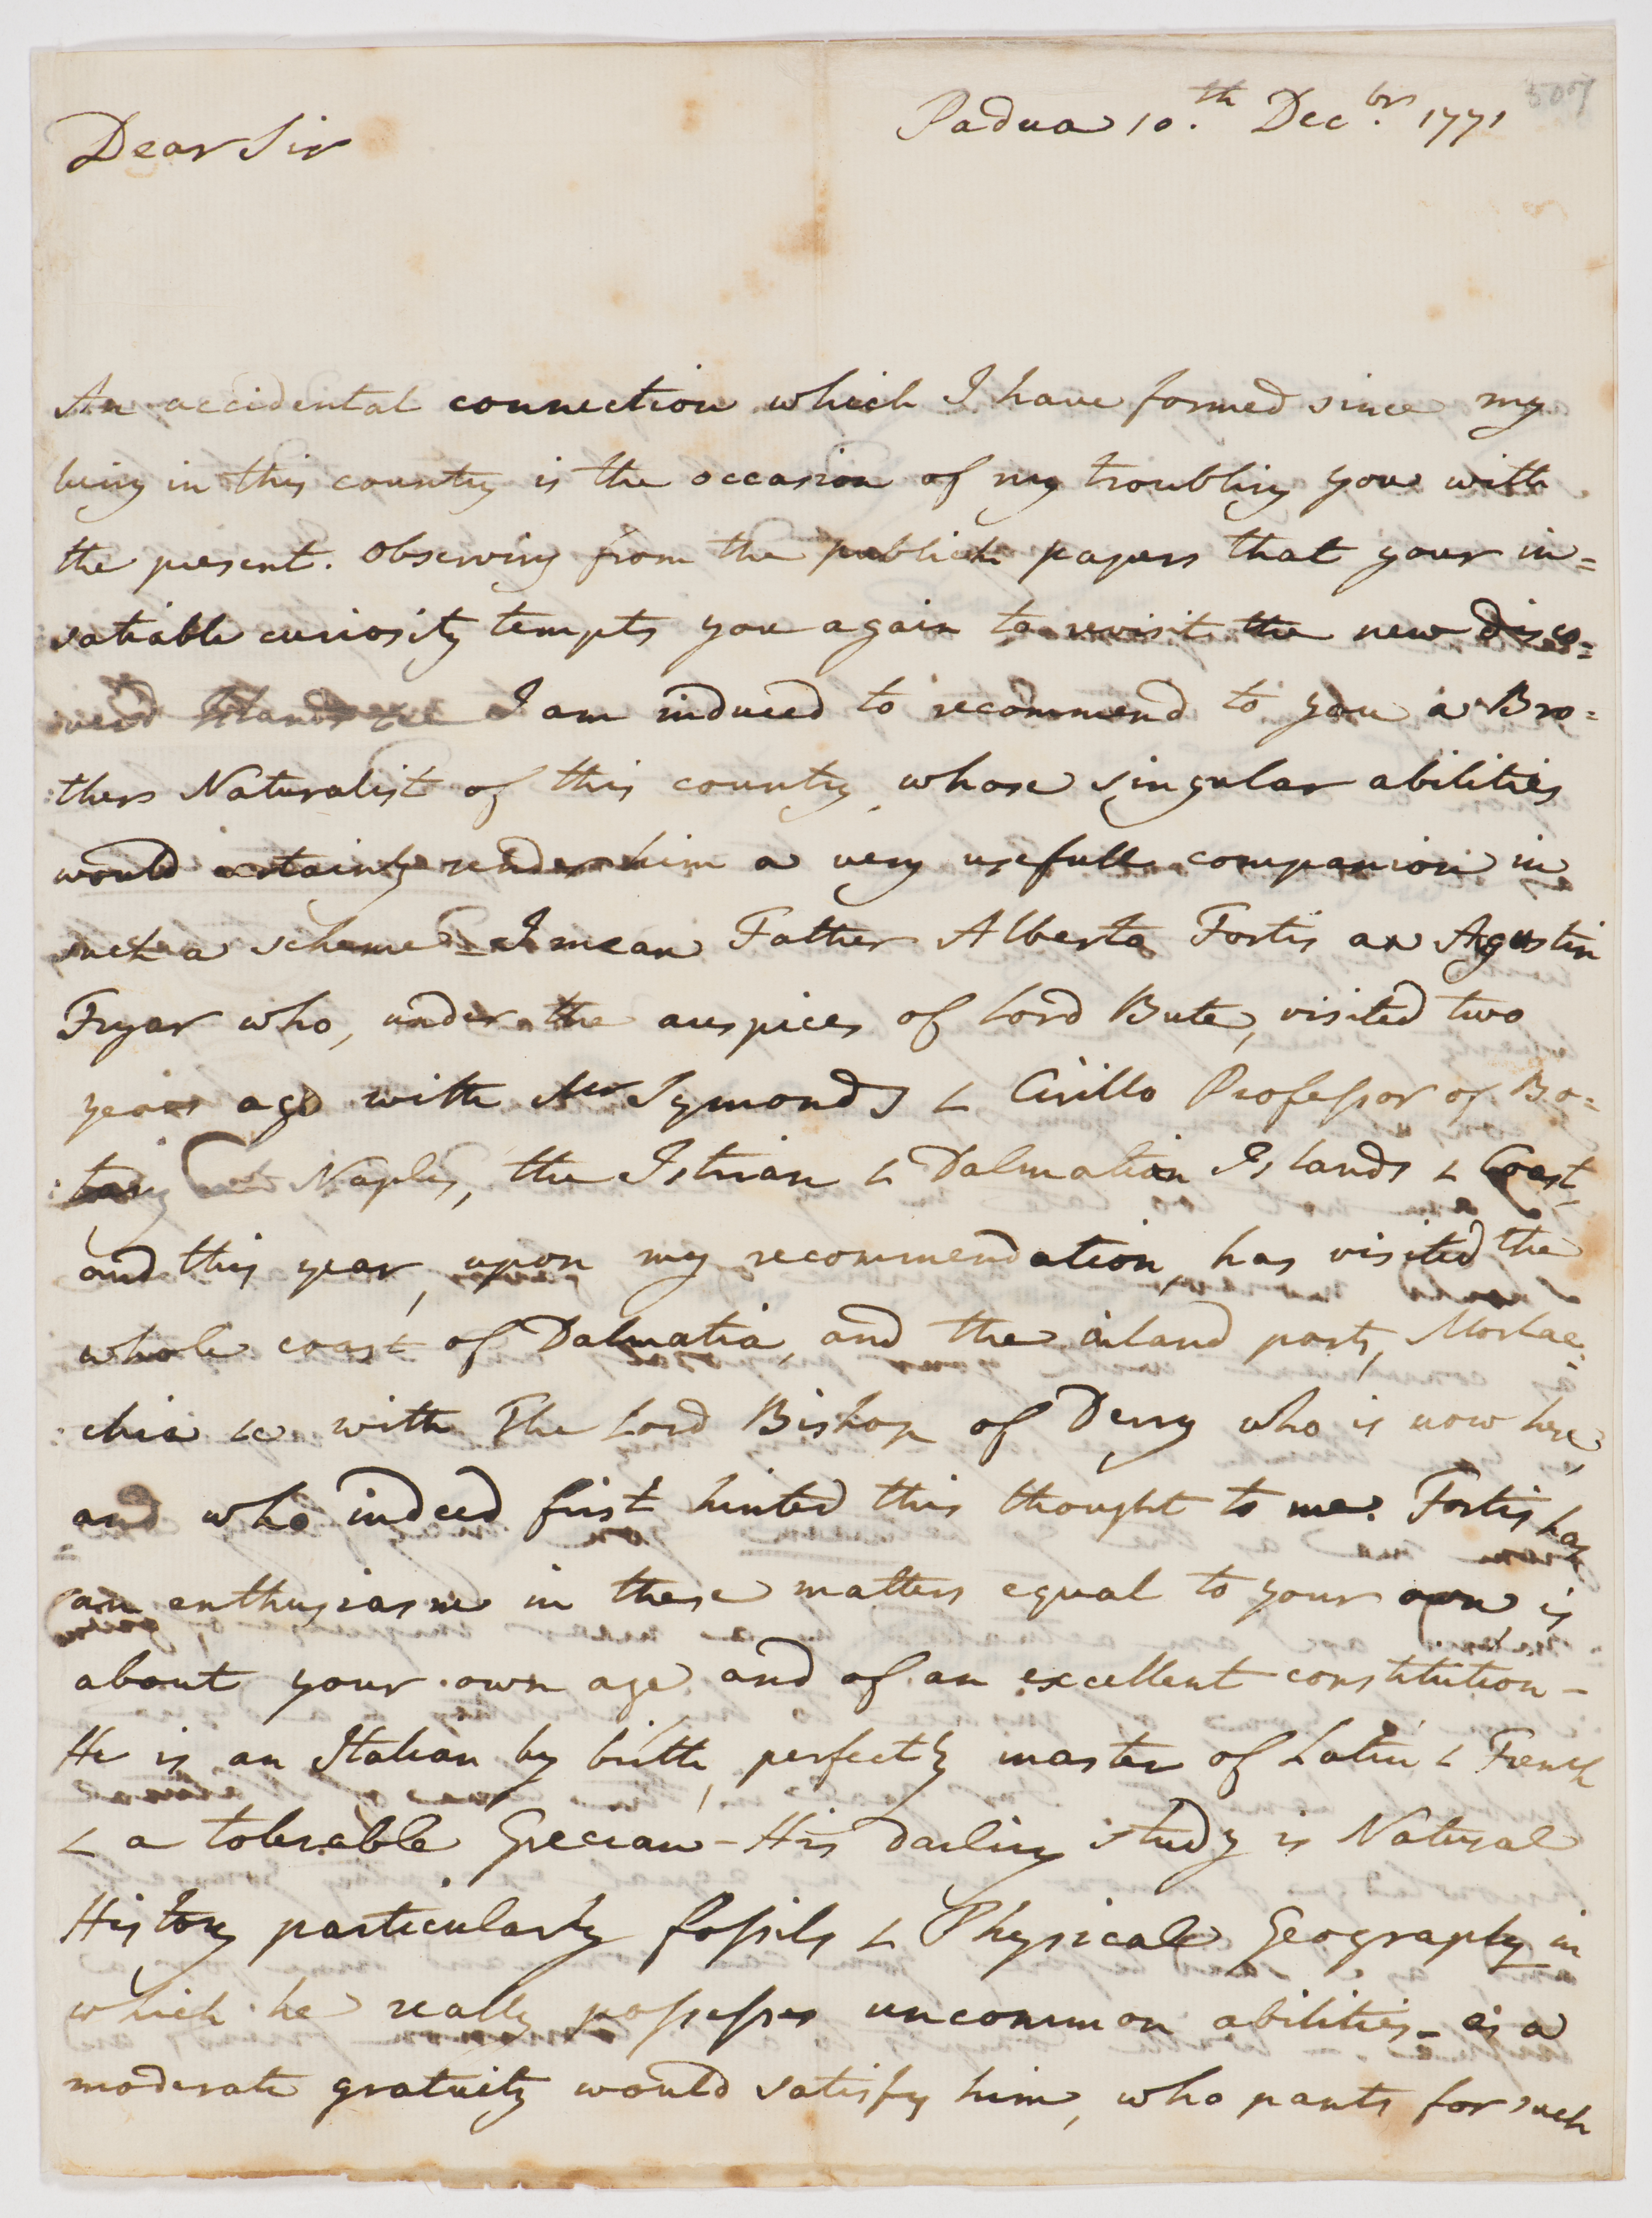 Padua 10.th Decbr. 1771
Dear Sir
An accidental connection which I have formed since my
being in this country is the occasion of my troubling you with
the present. Observing from the publick papers that your in=
satiable curiosity tempts you again to revisit the new disco=
verd Islands &c I am induced to recommend to you a Bro=
:thers Naturalist of this country, whose singular abilities
would certainly render him a very usefull companion in
such a scheme - I mean Father Alberto Fortis an Agustin
Fryar who, under the auspices of Lord Bute, visited two
years ago with Mr Symonds & Cirillo Professor of Bo=
:tany at Naples, the Istrian & Dalmatian Islands & Coast,
and this year, upon my recommendation, has visited the
whole coast of Dalmatia, and the inland parts, Morlac=
:chia &c with The Lord Bishop of Derry who is now here,
and who indeed first hinted this thought to me. Fortis has
an enthusiasm in these matters equal to your own is
about your own age and of an excellent constitution -
He is an Italian by birth, perfectly master of Latin & French
& a tolerable Grecian - His darling study is Natural
History particularly fossils & Physical Geography in
which he really possesses uncommon abilities - as a
moderate gratuity would satisfy him, who pants for such